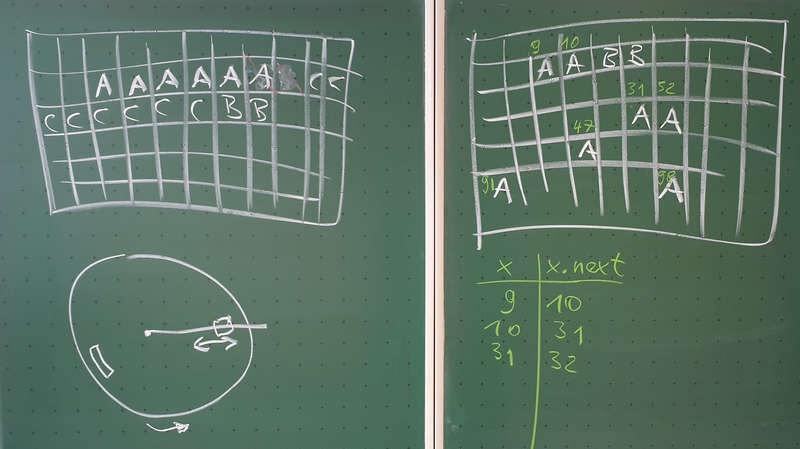 A A A A A A C C
C C C C C C B B
9 10
A A B B
31 52
A A
47
A
91 98
A A
x x.next
9 10
10 31
31 32